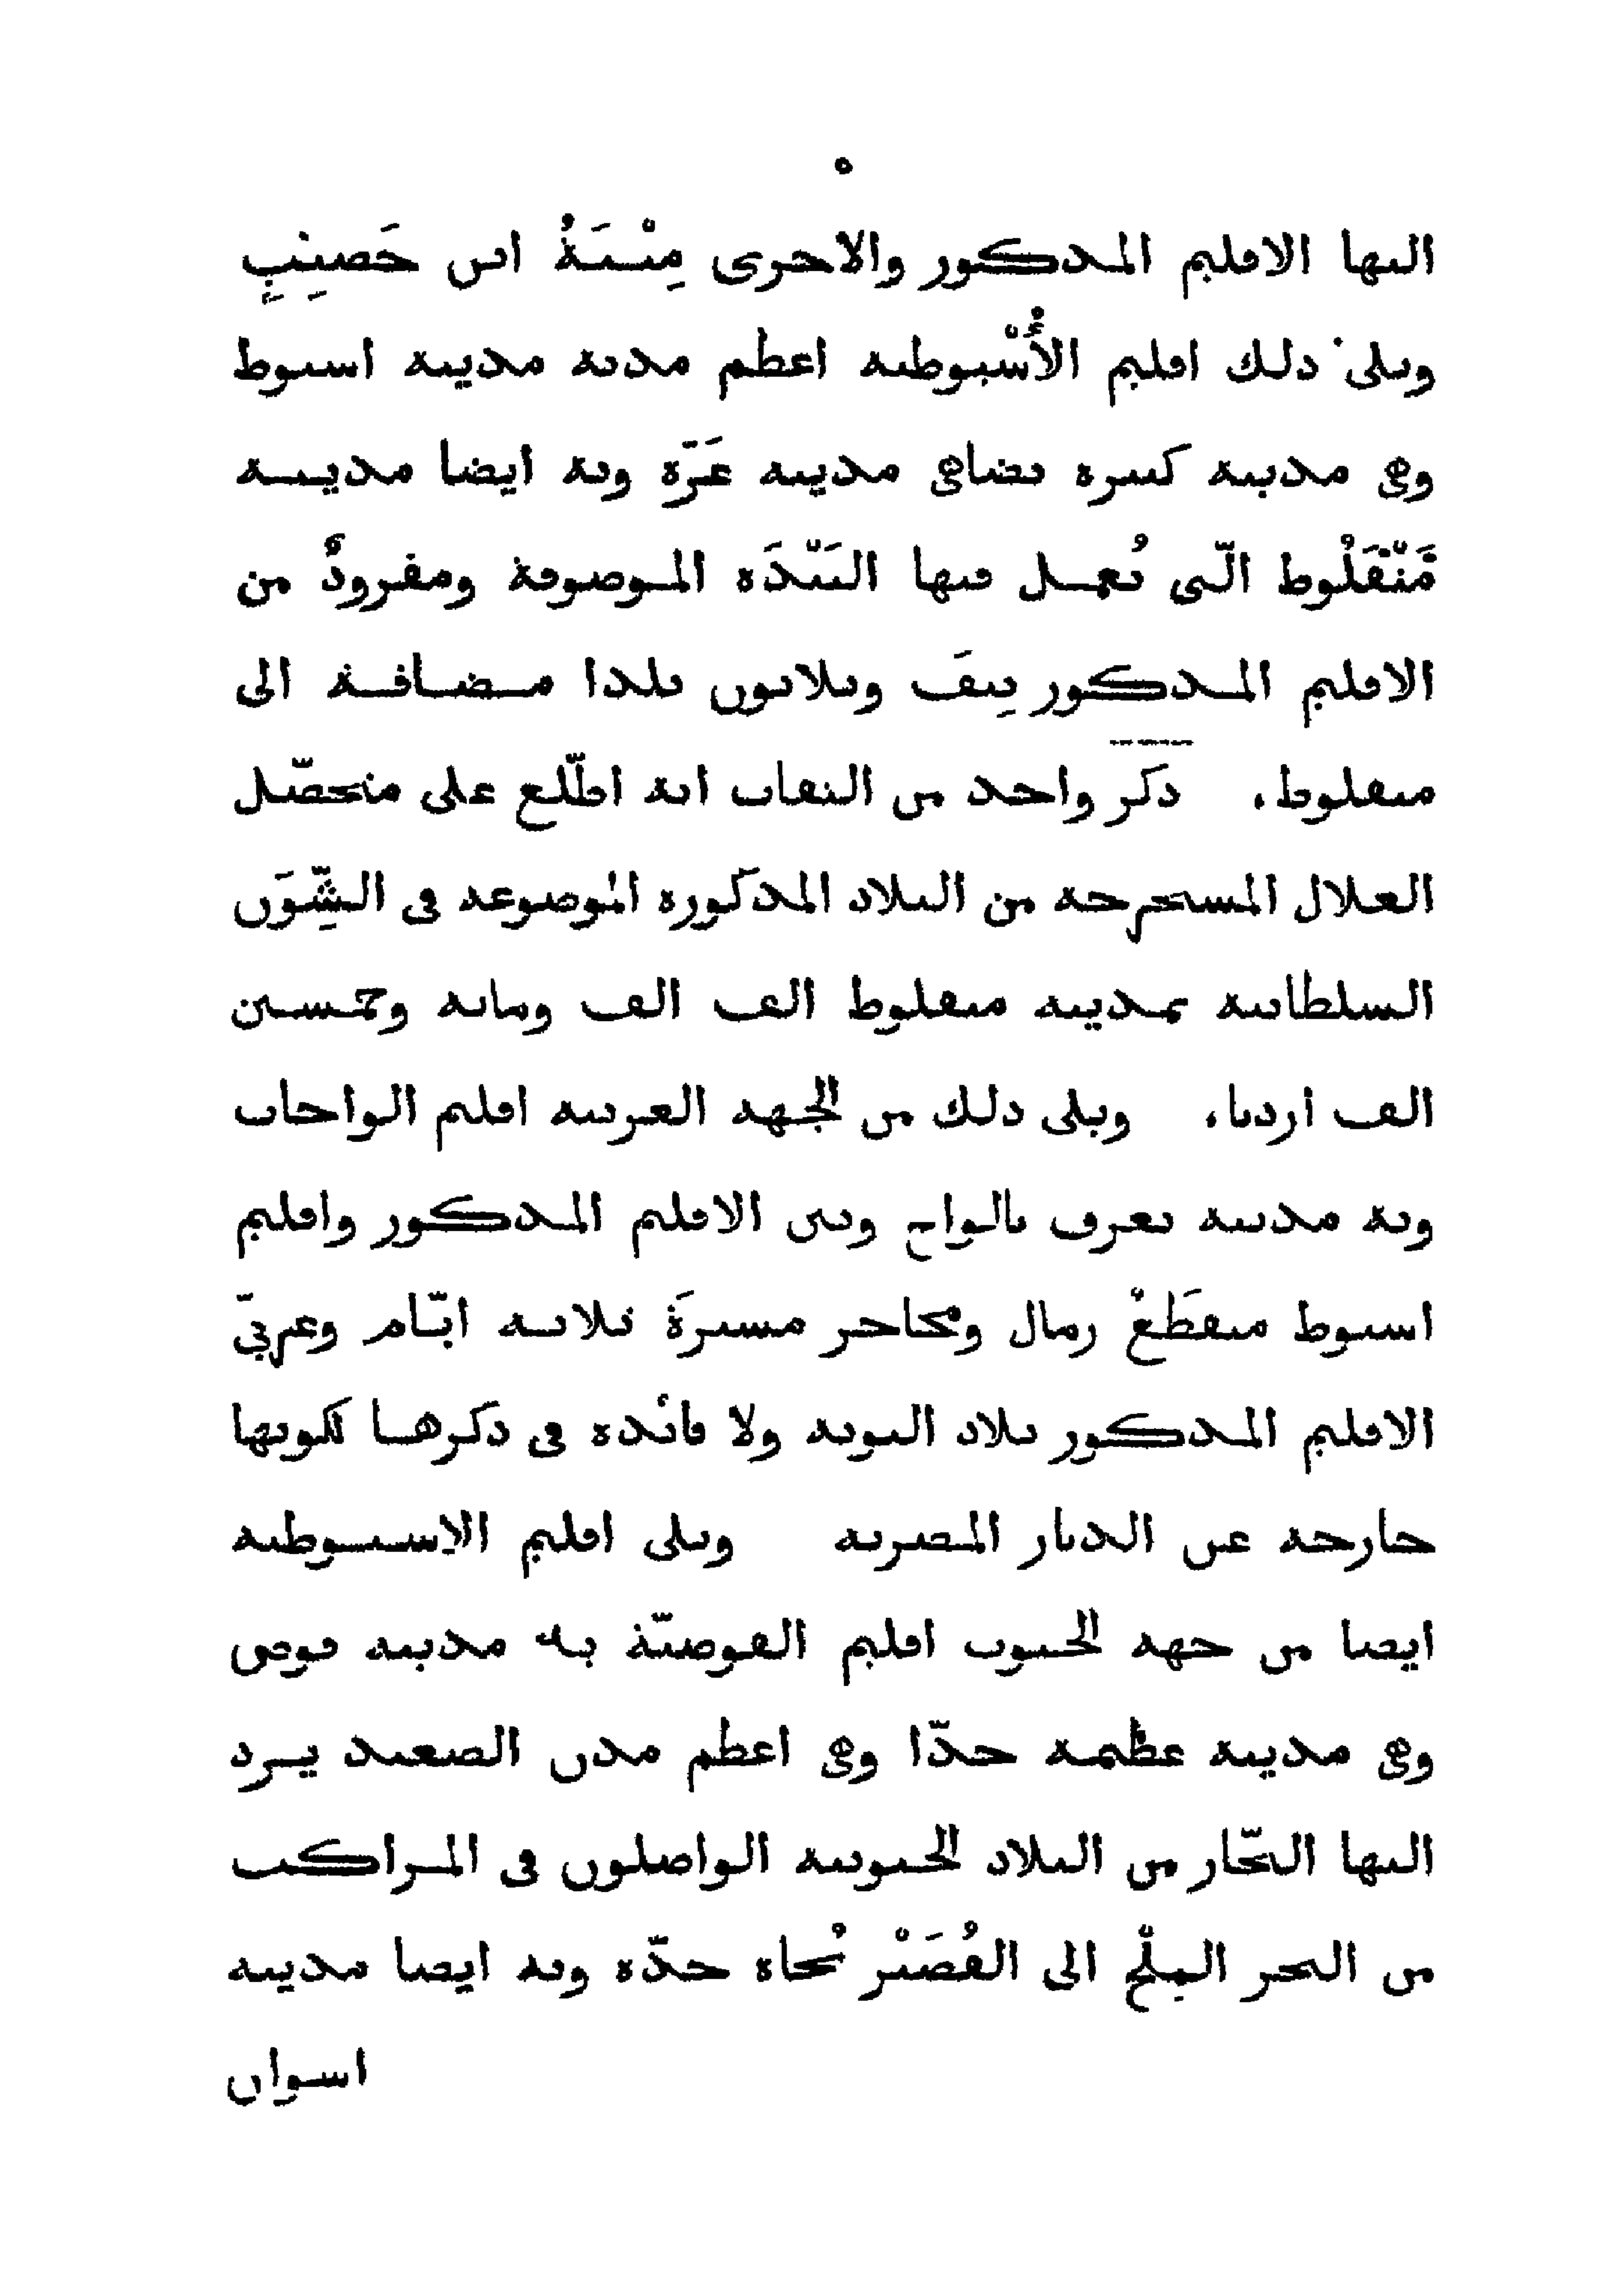 ٥
اليها الاقليم المذكور والاخرى مِنْيَةُ ابن خَصِيبٍ
ويلى ذلك اقليم الأُسْيوطية اعظم مدنه مدينة اسيوط
وهى مدينة كبيرة تضاهى مدينة غَزّة وبه ايضا مدينـة
مَنْفَلُوط الّتى تُعمـل فيها البَنْدَه الموصوفة ومفرودٌ من
الاقليم المذكور نِيفَ وثلاثون بلدا مـضـافـة الى
منفلوط، ذكر واحد من الثقات انه اطّلع على متحصّل
الغلال المستخرجة من البلاد المذكورة الموضوعة فى الشِّوَن
السلطانية بمدينة منفلوط الف الف ومائة وخمسـين
الف اردبا، ويلى ذلك من الجهة الغربية اقليم الواحات
وبه مدينة تعرف بالواح وبين الاقليم المذكور واقليم
اسيوط منقَطَعُ رمال ومحاجر مسيرَة ثلاثة ايّام وغربىّ
الاقليم المذكور بلاد النوبة ولا فائدة فى ذكرهـا لكونها
خارجة عن الديار المصرية ويلى اقليم الاسـيـوطية
ايضا من جهة الجنوب اقليم القوصيّة به مدينة قوص
وهى مدينة عظيمة جدّا وهى اعظم مدن الصعيد يـرد
اليها التجّار من البلاد الجنوبية الواصلون فى المراكب
من البحر المِلْح الى القُصَيْر تُجاه جدّه وبه ايضا مدينة
اسوان